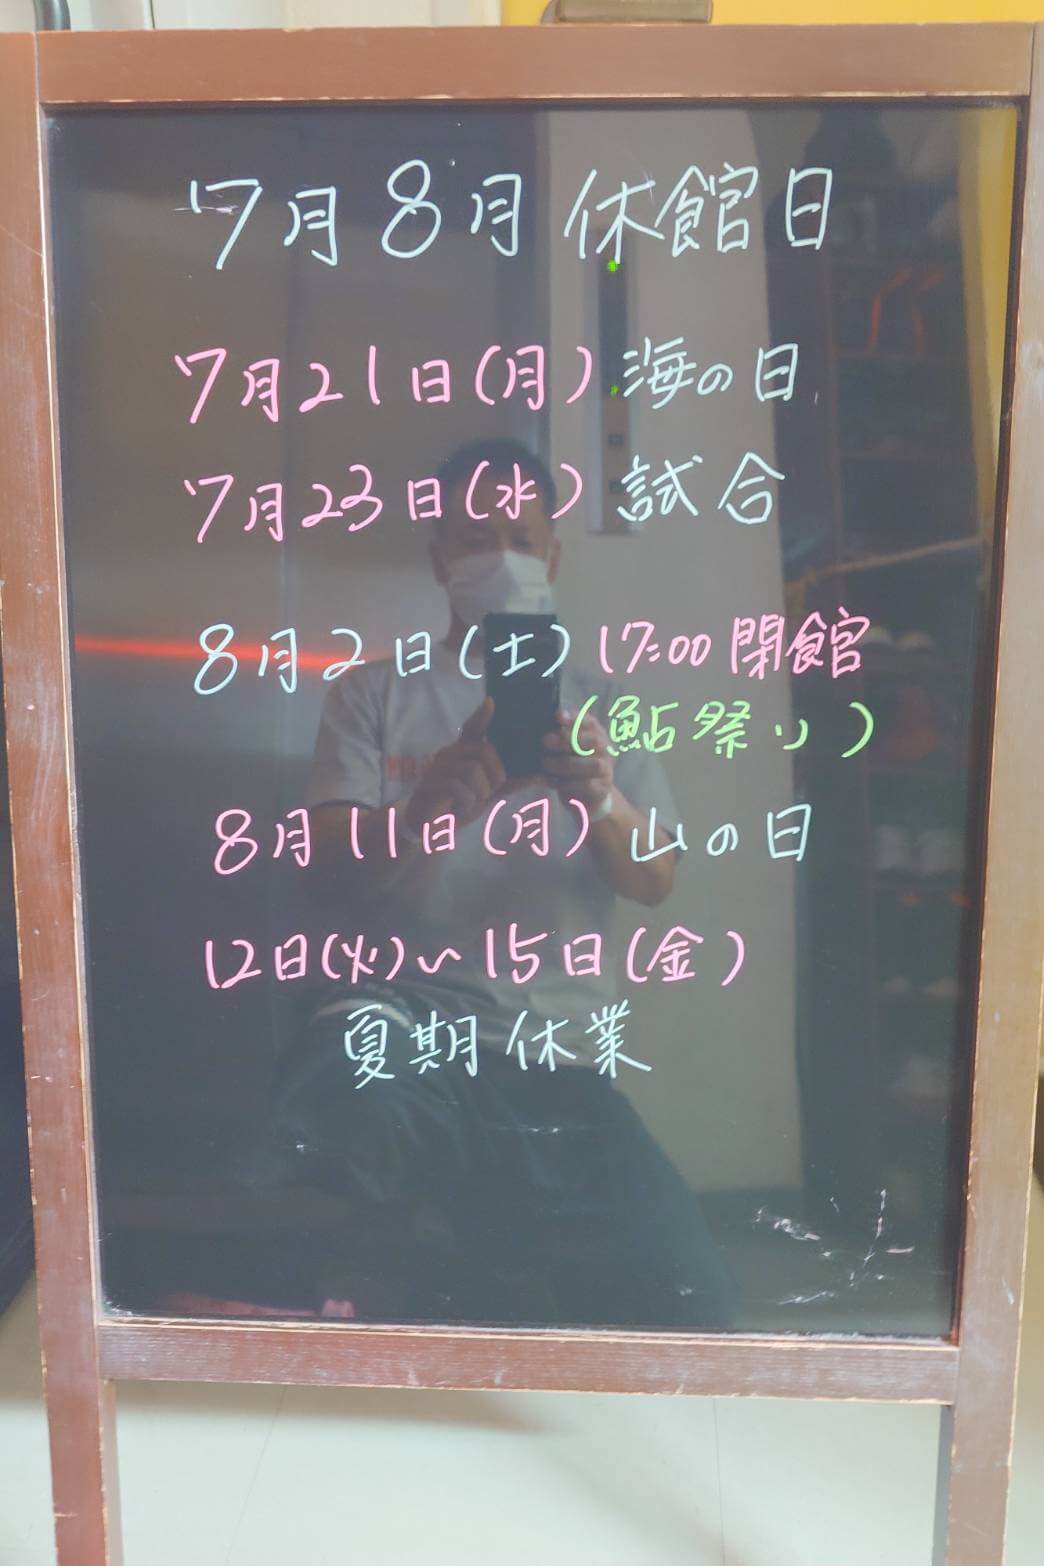 7月8月休館日
7月21日(月)海の日
7月23日(水)試合
8月2日(土)17:00閉館
(鮎祭り)
8月11日(月)山の日
12日(火)~15日(金)
夏期休業